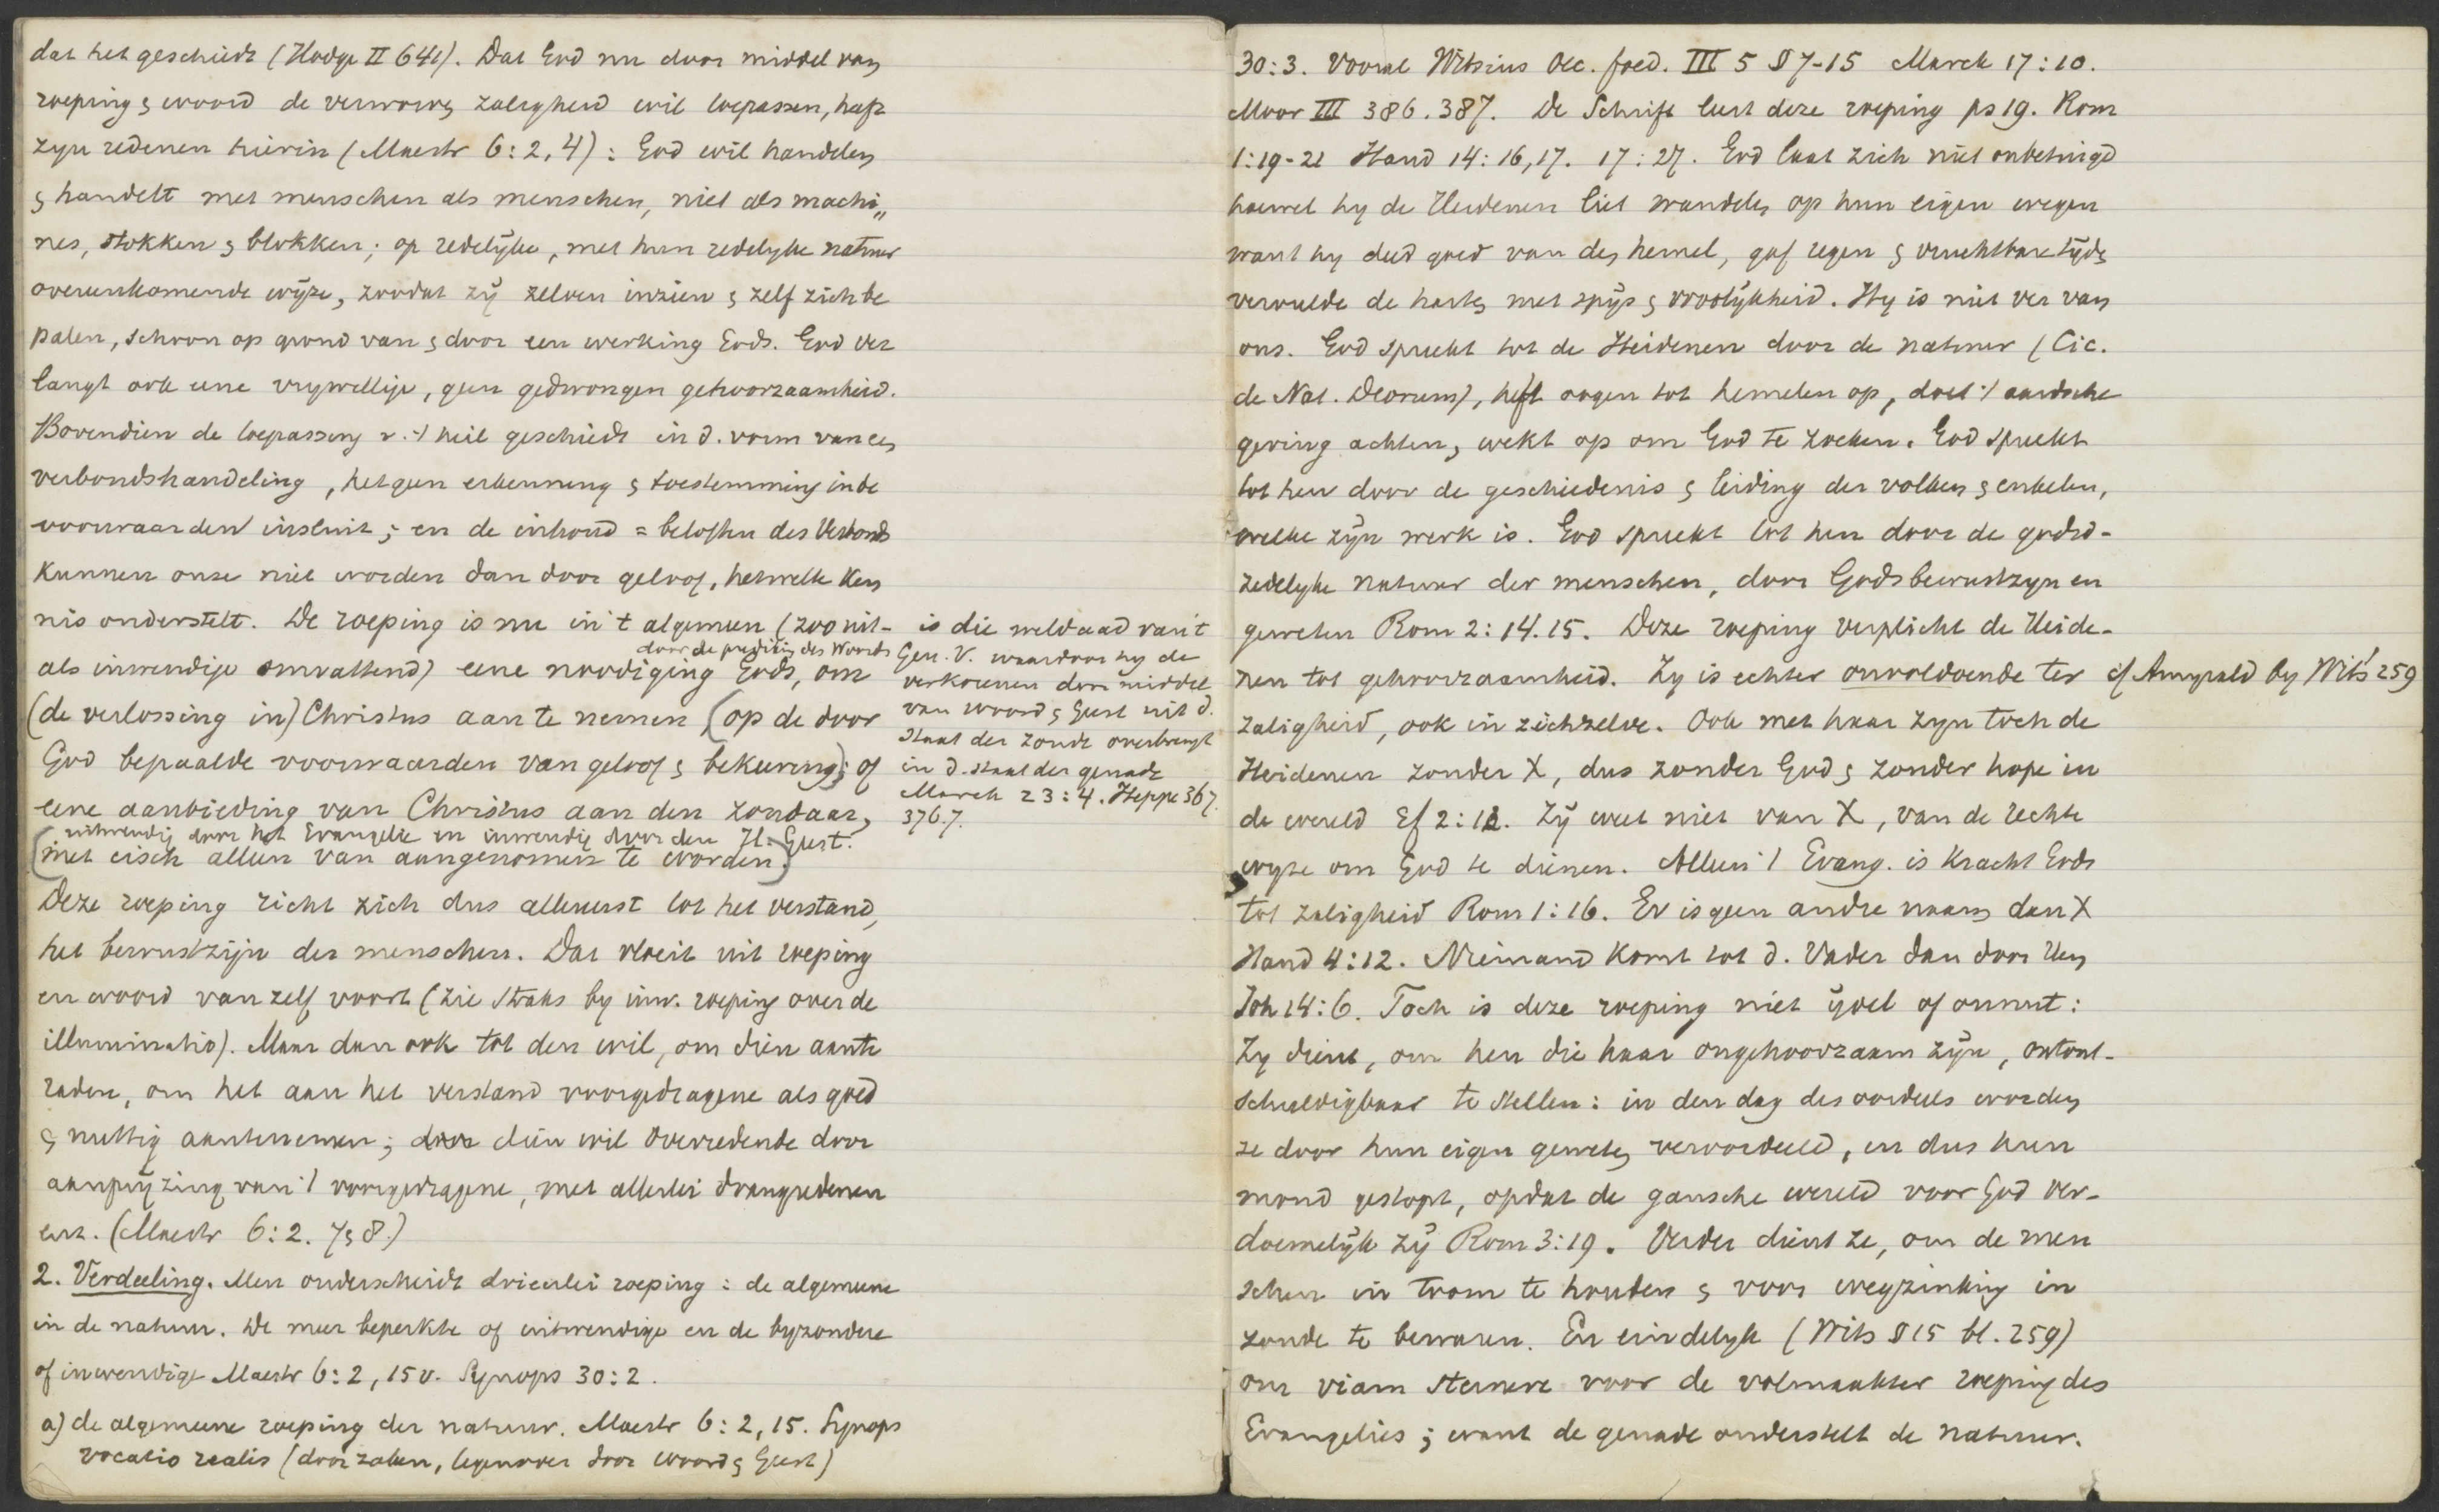 dat het geschiedt (Hodge II 641). Dat God nu door middel van
roeping & woord de verworven zaligheid wil toepassen, heeft
zyn redenen hierin (Maestr 6:2,4): God wil handelen
& handelt met menschen als menschen, niet als machi„
nes, stokken & blokken; op redelÿke, met hun redelyke natuur
overeenkomende wÿze, zoodat zÿ zelven inzien & zelf zich be
palen, schoon op grond van & door een werking Gods. God ver
langt ook eene vrywillige, geen gedwongen gehoorzaamheid.
Bovendien de toepassing v. 't heil geschiedt in d. vorm van een
verbondshandeling, hetgeen erkenning & toestemming in de
voorwaarden insluit; en de inhoud = beloften des Verbonds
kunnen onze niet worden dan door geloof, hetwelk ken
nis onderstelt. De roeping is nu in 't algemeen (zoo uit-
als inwendige omvattend) eene noodiging Gods, om
door de prediking des Woords
(de verlossing in) Christus aan te nemen (op de door
God bepaalde voorwaarden van geloof & bekeering); of
eene aanbieding van Christus aan den zondaar,
uitwendig door het Evangelie en inwendig door den H. Geest.
(met eisch alleen van aangenomen te worden)
Deze roeping richt zich dus allereerst tot het verstand,
het bewustzijn der menschen. Dat vloeit uit roeping
en woord van zelf voort (zie straks by inw. roeping over de
illuminatio). Maar dan ook tot den wil, om dien aan te
raden, om het aan het verstand voorgedragene als goed
& nuttig aantenemen; door dien wil overredende door
aanpryzing van 't voorgedragene, met allerlei drangredenen
enz. (Maestr 6:2. 7&8.)
2. Verdeeling. Men onderscheidt drieerlei roeping: de algemeene
in de natuur. De meer beperkte of uitwendige en de byzondere
of inwendige Maestr 6:2, 15 v. Synops 30:2.
a) de algemeene roeping der natuur. Maestr 6:2, 15. Synops
vocatio realis (door zaken, tegenover door woord & Geest)
is die weldaad van 't
Gen. V. waardoor hy de
verkorenen door middel
van woord & Geest uit d.
staat der zonde overbrengt
in d. staat der genade
March 23:4. Heppe 367.
376.7.
30:3. Vooral Witsius Oec. foed. III 5 § 7-15 March 17:10.
Moor III 386.387. De Schrift leert deze roeping ps 19. Rom
1:19-21 Hand 14:16,17. 17:27. God laat zich niet onbetuigd
hoewel hy de Heidenen liet wandelen op hun eigen wegen
want hy deed goed van den hemel, gaf regen & vruchtbare tÿden
vervulde de harten met spÿs & vroolÿkheid. Hy is niet ver van
ons. God spreekt tot de Heidenen door de natuur (Cic.
de Nat. Deorum), heft oogen tot hemelen op, doet 't aardsche
gering achten, wekt op om God te zoeken. God spreekt
tot hen door de geschiedenis & leiding der volken & enkelen,
welke zÿn werk is. God spreekt tot hen door de godsd-
zedelyke natuur der menschen, door Godsbewustzyn en
geweten Rom 2:14.15. Deze roeping verplicht de Heide-
nen tot gehoorzaamheid. Zy is echter onvoldoende ter
cf Amyrald by Wits 259
zaligheid, ook in zichzelve. Ook met haar zyn toch de
Heidenen zonder X, dus zonder God & zonder hope in
de wereld Ef 2:12. Zÿ weet niet van X, van de rechte
wyze om God te dienen. Alleen 't Evang. is kracht Gods
tot zaligheid Rom 1:16. Er is geen andre naam dan X
Hand 4:12. Niemand komt tot d. Vader dan door Hem
Joh 14:6. Toch is deze roeping niet ÿdel of onnut:
Zy dient, om hen die haar ongehoorzaam zÿn, ontont-
schuldigbaar te stellen: in den dag des oordeels worden
ze door hun eigen geweten veroordeeld, en dus hun
mond gestopt, opdat de gansche wereld voor God ver-
doemelÿk zÿ Rom 3:19. Verder dient ze, om de men
schen in toom te houden & voor wegzinking in
zonde te bewaren. En eindelyk (Wits § 15 bl. 259)
om viam sternere voor de volmaakter roeping des
Evangelies; want de genade onderstelt de natuur.